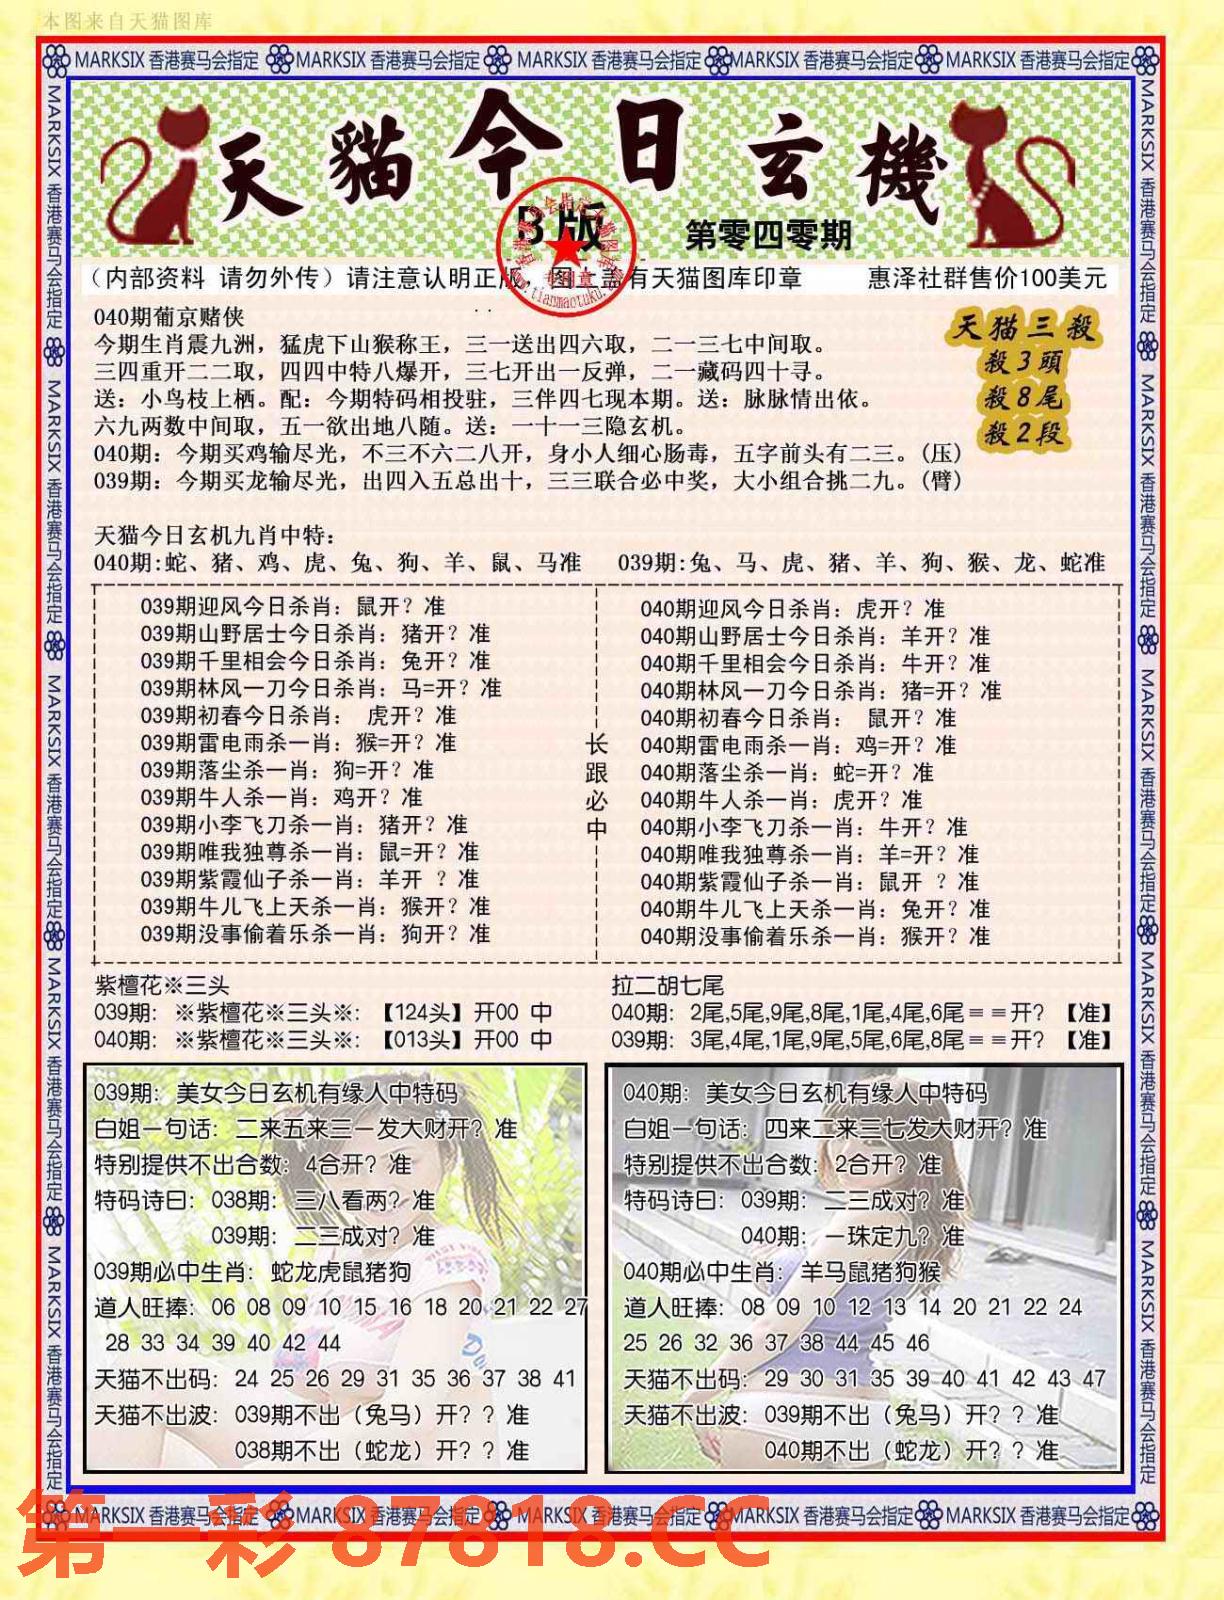 本图来自天猫图库
MARKSIX 香港赛马会指定 MARKSIX 香港赛马会指定 MARKSIX 香港赛马会指定 MARKSIX 香港赛马会指定 MARKSIX 香港赛马会指定
MARKSIX 香港赛马会指定 MARKSIX 香港赛马会指定 MARKSIX 香港赛马会指定 MARKSIX 香港赛马会指定 MARKSIX 香港赛马会指定
MARKSIX 香港赛马会指定 MARKSIX 香港赛马会指定 MARKSIX 香港赛马会指定 MARKSIX 香港赛马会指定 MARKSIX 香港赛马会指定
天貓今日玄機
B版 第零四零期
(内部资料 请勿外传)请注意认明正版,图上盖有天猫图库印章 惠泽社群售价100美元
040期葡京赌侠
今期生肖震九洲，猛虎下山猴称王，三一送出四六取，二一三七中间取。
三四重开二二取，四四中特八爆开，三七开出一反弹，二一藏码四十寻。
送：小鸟枝上栖。配：今期特码相投驻，三伴四七现本期。送：脉脉情出依。
六九两数中间取，五一欲出地八随。送：一十一三隐玄机。
040期：今期买鸡输尽光，不三不六二八开，身小人细心肠毒，五字前头有二三。(压)
039期：今期买龙输尽光，出四入五总出十，三三联合必中奖，大小组合挑二九。(臂)
天猫三殺
殺3頭
殺8尾
殺2段
天猫今日玄机九肖中特：
040期:蛇、猪、鸡、虎、兔、狗、羊、鼠、马准 039期:兔、马、虎、猪、羊、狗、猴、龙、蛇准
039期迎风今日杀肖：鼠开？准
039期山野居士今日杀肖：猪开？准
039期千里相会今日杀肖：兔开？准
039期林风一刀今日杀肖：马=开？准
039期初春今日杀肖： 虎开？准
039期雷电雨杀一肖：猴=开？准
039期落尘杀一肖：狗=开？准
039期牛人杀一肖：鸡开？准
039期小李飞刀杀一肖：猪开？准
039期唯我独尊杀一肖：鼠=开？准
039期紫霞仙子杀一肖：羊开 ？准
039期牛儿飞上天杀一肖：猴开？准
039期没事偷着乐杀一肖：狗开？准
长跟必中
040期迎风今日杀肖：虎开？准
040期山野居士今日杀肖：羊开？准
040期千里相会今日杀肖：牛开？准
040期林风一刀今日杀肖：猪=开？准
040期初春今日杀肖： 鼠开？准
040期雷电雨杀一肖：鸡=开？准
040期落尘杀一肖：蛇=开？准
040期牛人杀一肖：虎开？准
040期小李飞刀杀一肖：牛开？准
040期唯我独尊杀一肖：羊=开？准
040期紫霞仙子杀一肖：鼠开 ？准
040期牛儿飞上天杀一肖：兔开？准
040期没事偷着乐杀一肖：猴开？准
紫檀花※三头
039期：※紫檀花※三头※：【124头】开00 中
040期：※紫檀花※三头※：【013头】开00 中
拉二胡七尾
040期：2尾,5尾,9尾,8尾,1尾,4尾,6尾＝＝开？【准】
039期：3尾,4尾,1尾,9尾,5尾,6尾,8尾＝＝开？【准】
039期：美女今日玄机有缘人中特码
白姐一句话：二来五来三一发大财开？准
特别提供不出合数：4合开？准
特码诗曰：038期：三八看两？准
039期：二三成对？准
039期必中生肖：蛇龙虎鼠猪狗
道人旺捧：06 08 09 10 15 16 18 20 21 22 27
28 33 34 39 40 42 44
天猫不出码：24 25 26 29 31 35 36 37 38 41
天猫不出波：039期不出（兔马）开？？准
038期不出（蛇龙）开？？准
040期：美女今日玄机有缘人中特码
白姐一句话：四来二来三七发大财开？准
特别提供不出合数：2合开？准
特码诗曰：039期：二三成对？准
040期：一珠定九？准
040期必中生肖：羊马鼠猪狗猴
道人旺捧：08 09 10 12 13 14 20 21 22 24
25 26 32 36 37 38 44 45 46
天猫不出码：29 30 31 35 39 40 41 42 43 47
天猫不出波：039期不出（兔马）开？？准
040期不出（蛇龙）开？？准
MARKSIX 香港赛马会指定 MARKSIX 香港赛马会指定 MARKSIX 香港赛马会指定 MARKSIX 香港赛马会指定 MARKSIX 香港赛马会指定
第一彩 87818.CC